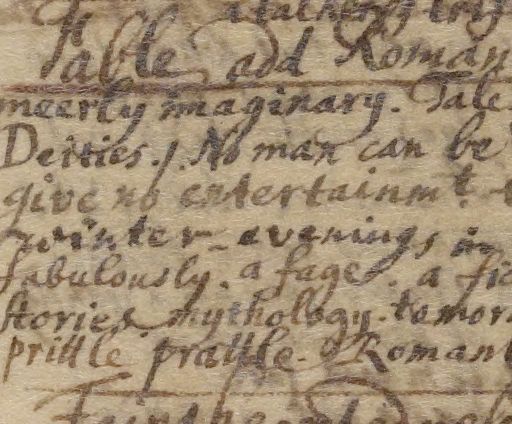 Fable, add Roman
meerly imaginary. Tale
Deities. / . No man can be
give no entertainmt.
winter-evenings in
fabulously. a fage. a fic
stories mythology. to mor
prittle prattle. Romant